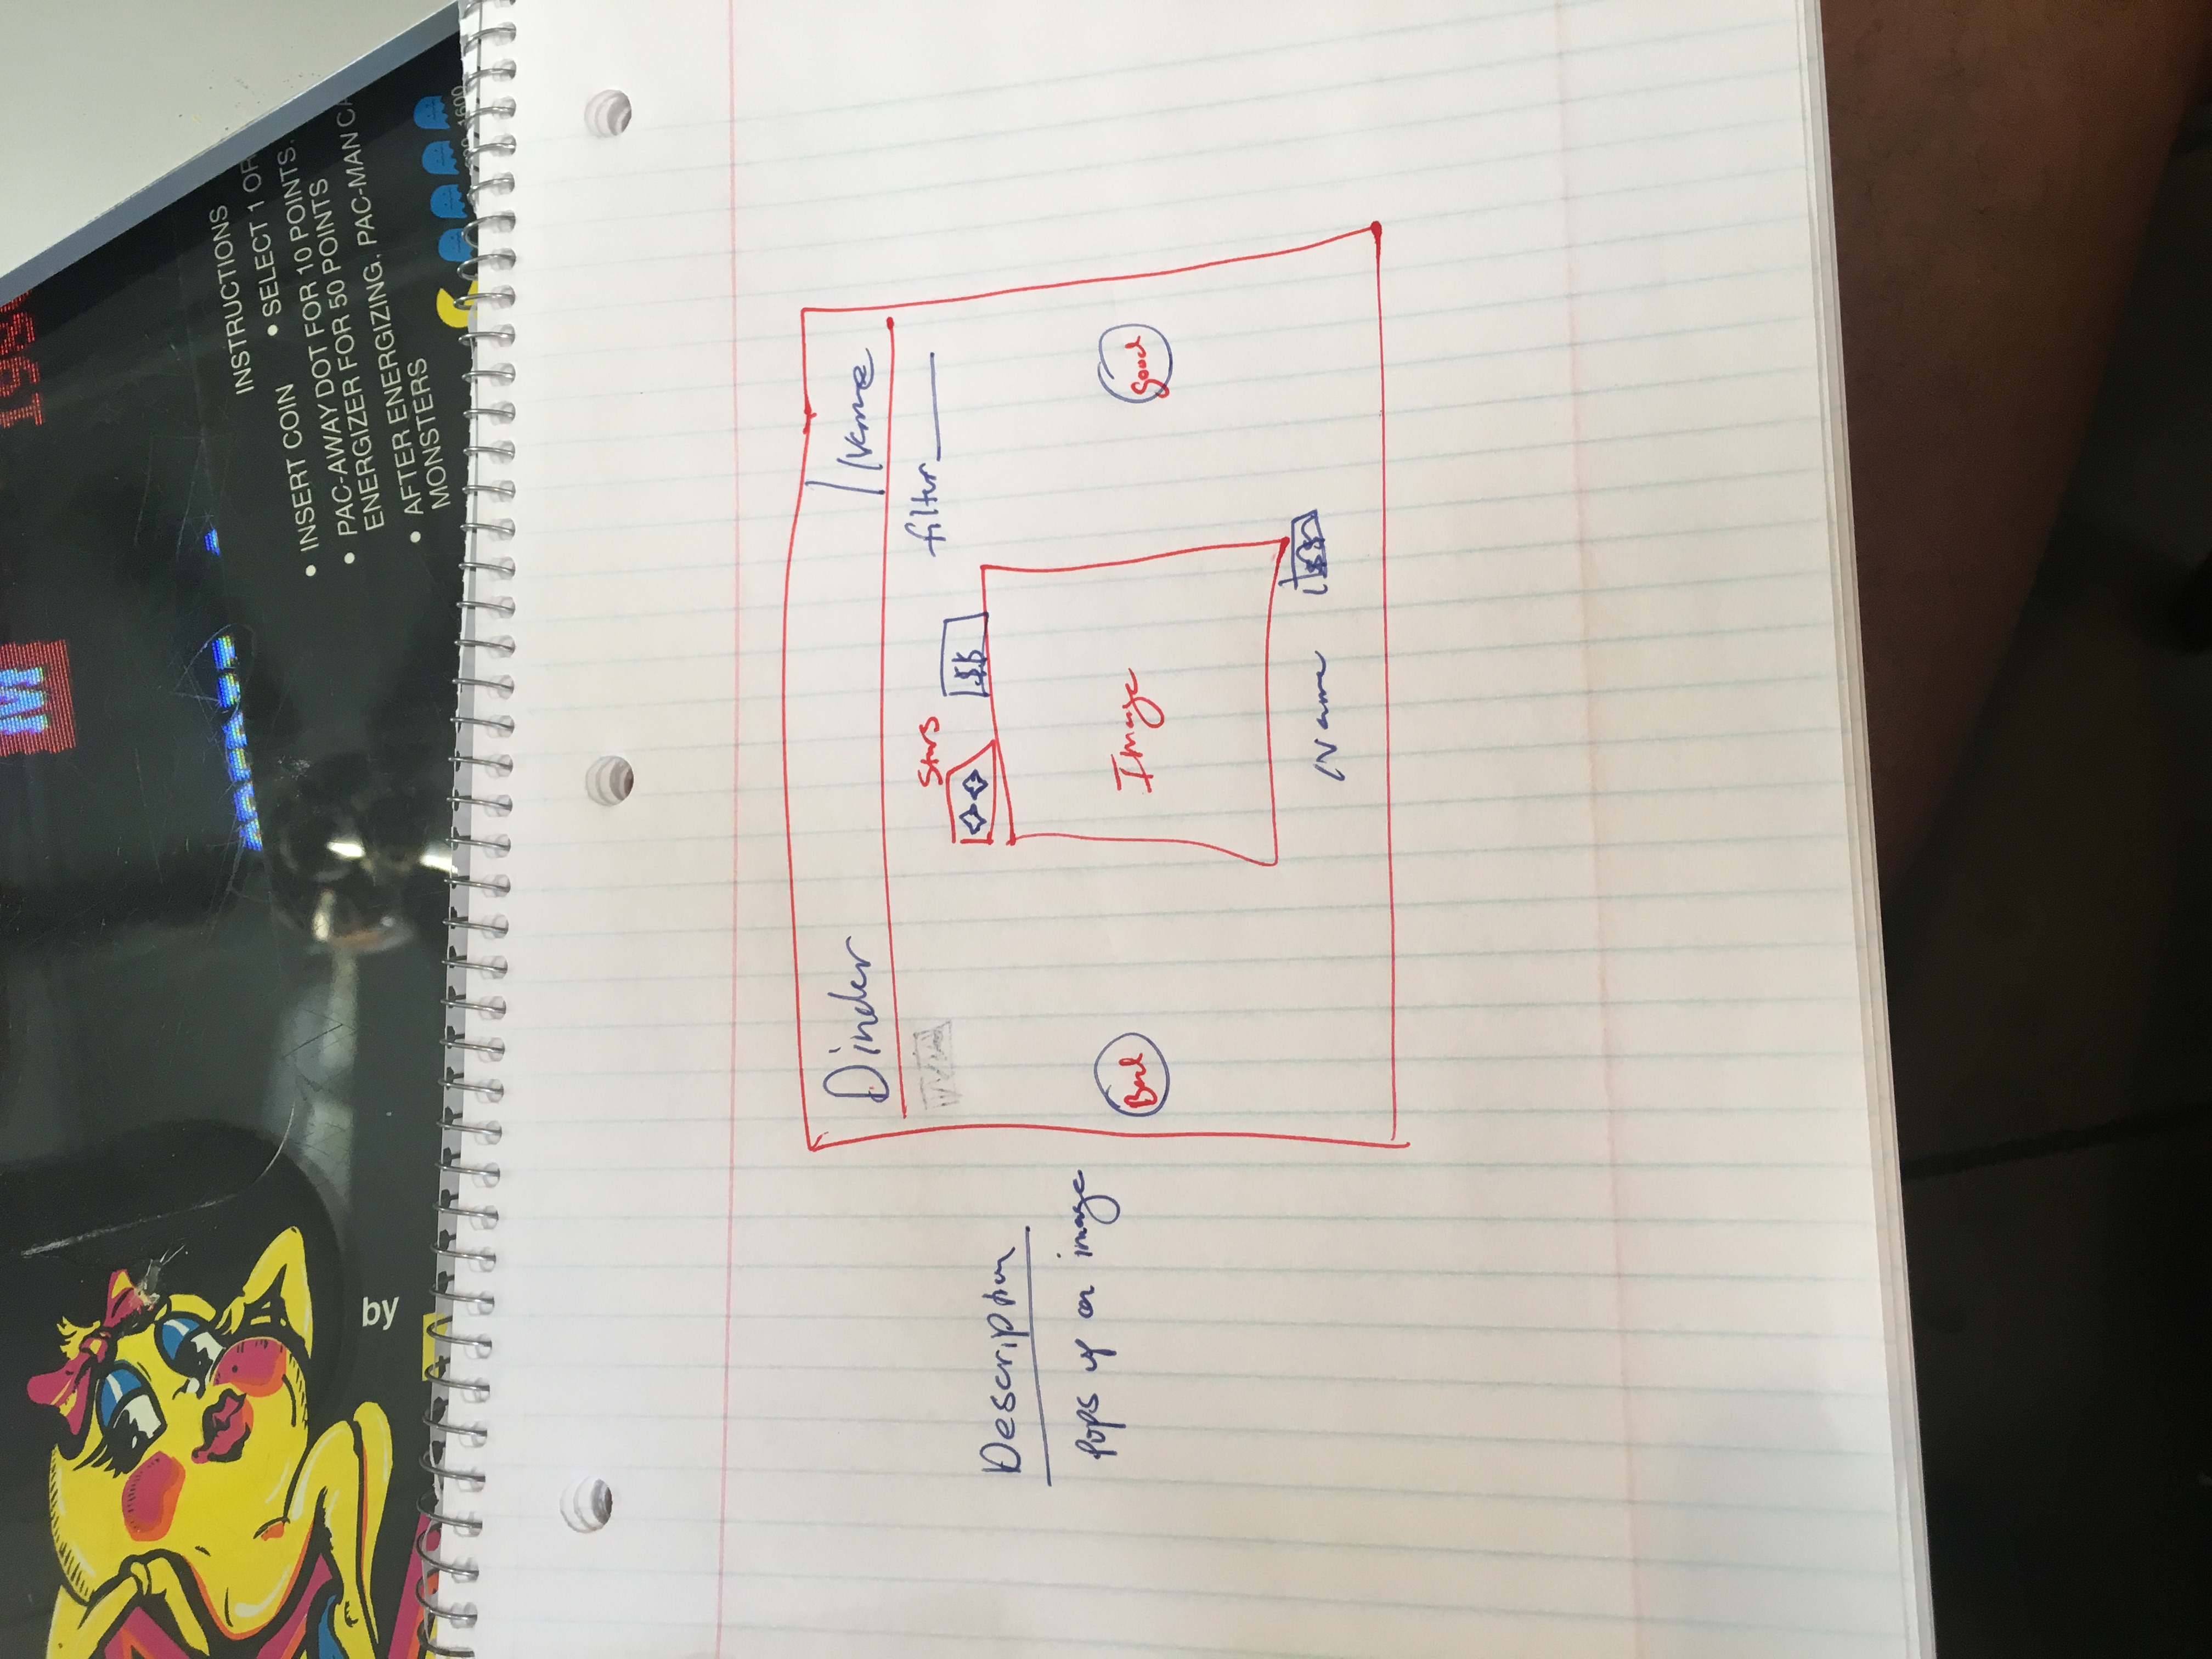 M
198
INSTRUCTIONS
• INSERT COIN • SELECT 1 OR
• PAC-AWAY DOT FOR 10 POINTS,
ENERGIZER FOR 50 POINTS
• AFTER ENERGIZING, PAC-MAN CA
MONSTERS
by
Dinder Name
Stars filter
$$
Description
Pops up on image
Bad Image Good
Name